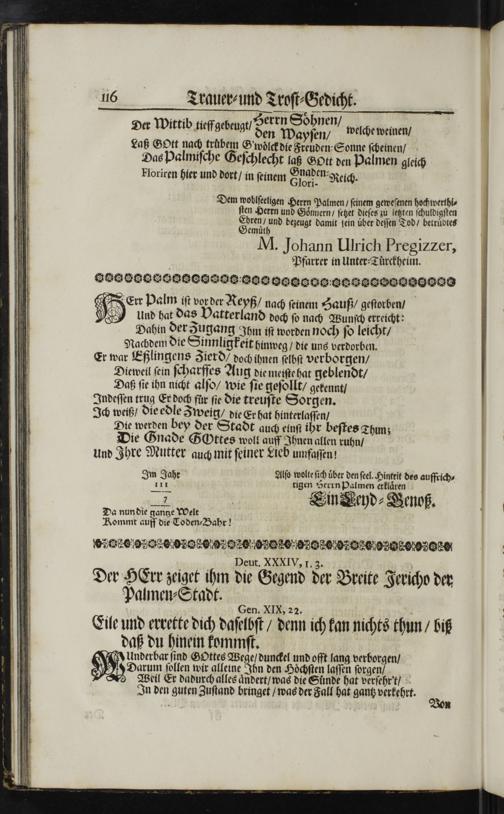 116 Trauer- und Trost-Gedicht.
Der Wittib tieff gebeugt/ Herrn Söhnen/
den Waysen/ welche weinen/
Laß GOtt nach trübem G'wölck die Freuden-Sonne scheinen/
Das Palmische Geschlecht laß GOtt den Palmen gleich
Floriren hier und dort/ in seinem Gnaden-
Glori- Reich.
Dem wohlseeligen Herrn Palmen/ seinem gewesenen hochwerthi-
sten Herrn und Gönnern/ setzet dieses zu letzten schuldigsten
Ehren/ und bezeugt damit sein über dessen Tod/ betrübtes
Gemüth
M. Johann Ulrich Pregizzer,
Pfarrer in Unter-Türckheim.
HErr Palm ist vor der Reyß/ nach seinem Hauß/ gestorben/
Und hat das Vatterland doch so nach Wunsch erreicht:
Dahin der Zugang Ihm ist worden noch so leicht/
Nachdem die Sinnligkeit hinweg/ die uns verdorben.
Er war Eßlingens Zierd/ doch ihnen selbst verborgen/
Dieweil sein scharffes Aug die meiste hat geblendt/
Daß sie ihn nicht also/ wie sie gesollt/ gekennt/
Indessen trug Er doch für sie die treuste Sorgen.
Ich weiß/ die edle Zweig/ die Er hat hinterlassen/
Die werden bey der Stadt auch einst ihr bestes Thun;
Die Gnade GOttes woll auff Ihnen allen ruhn/
Und Ihre Mutter auch mit seiner Lieb umfassen!
Im Jahr
111
7
Da nun die gantze Welt
Kommt auff die Toden-Bahr!
Also wolte sich über den seel. Hintrit des auffrich-
tigen Herrn Palmen erklären
Ein Leyd-Genoß.
Deut. XXXIV, 1. 3.
Der HErr zeiget ihm die Gegend der Breite Jericho der
Palmen-Stadt.
Gen. XIX, 22.
Eile und errette dich daselbst/ denn ich kan nichts thun/ biß
daß du hinein kommst.
WUnderbar sind GOttes Wege/ dunckel und offt lang verborgen/
Darum sollen wir alleine Ihn den Höchsten lassen sorgen/
Weil Er dadurch alles ändert/ was die Sünde hat versehr't/
In den guten Zustand bringet/ was der Fall hat gantz verkehrt.
Von